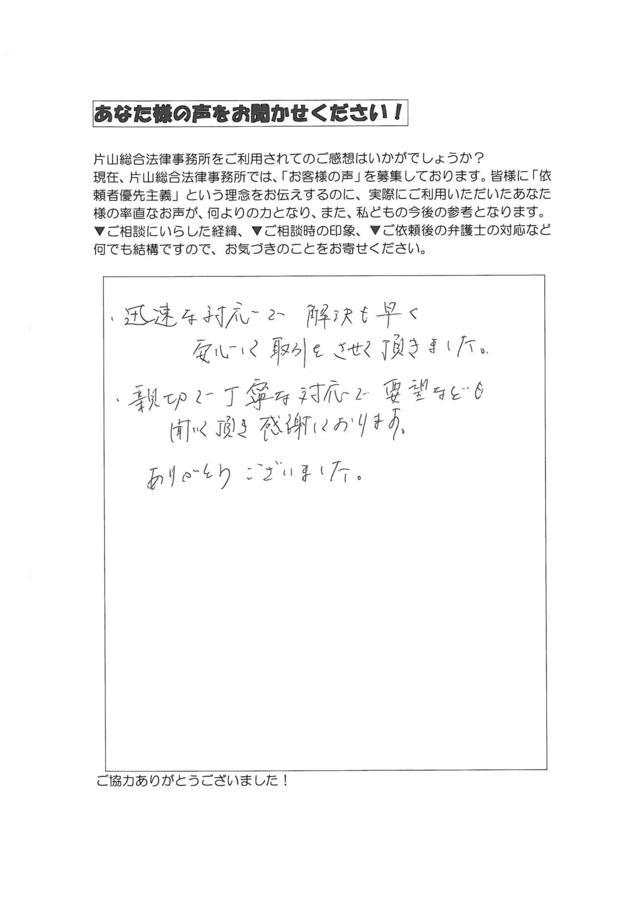 あなた様の声をお聞かせください！
片山総合法律事務所をご利用されてのご感想はいかがでしょうか？
現在、片山総合法律事務所では、「お客様の声」を募集しております。皆様に「依
頼者優先主義」という理念をお伝えするのに、実際にご利用いただいたあなた
様の率直なお声が、何よりの力となり、また、私どもの今後の参考となります。
▼ご相談にいらした経緯、▼ご相談時の印象、▼ご依頼後の弁護士の対応など
何でも結構ですので、お気づきのことをお寄せください。
・迅速な対応で 解決も早く
安心して 取引を させて 頂きました。
・親切で丁寧な対応で 要望なども
聞いて頂き 感謝しております。
ありがとう ございました。
ご協力ありがとうございました！